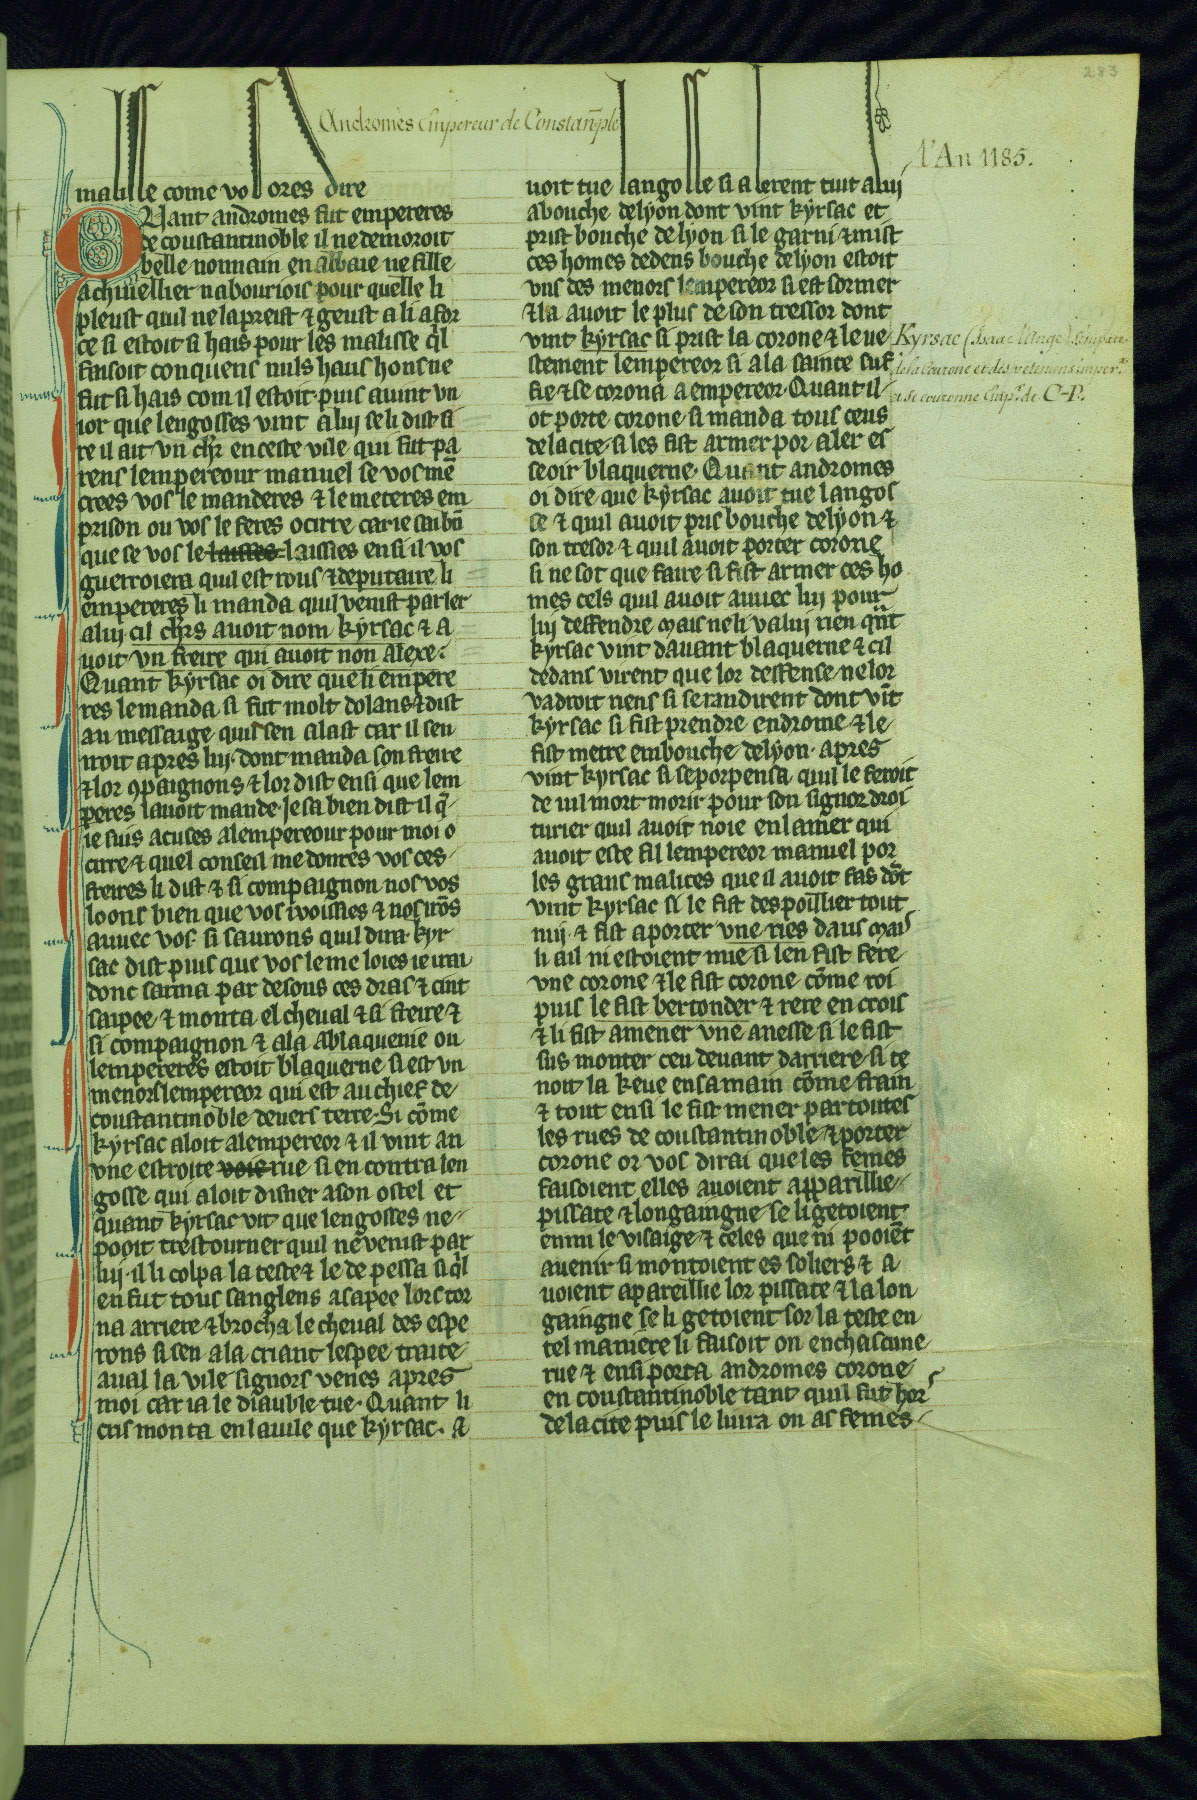 283
Andromès Empereur de Constan̄ple
L'An 1185.
malisse come vos ores dire
Quant andromes fut empereres
de coustantinoble il ne demoroit
belle nonnain en abbaie ne fille
a cheuellier na bouriois pour quelle li
pleust quil ne la preist & geust a li a for
ce si estoit si hais pour les malisse ql
faisoit conquens nuls haus hons ne
fut si hais com il estoit puis auint vn
ior que lengosses vint a luj se li dist si
re il ait vn chr̄ en ceste vile qui fut pa
rens lempereour manuel se vos mē
crees vos le manderes & le meteres em
prison ou vos le feres ocirre car ie sai bn̄
que se vos le laisses laissies ensi il vos
guerroiera quil est rous & deputaire li
empereres li manda quil venist parler
a luj cil chrs̄ auoit nom kyrsac & a
uoit vn freire qui auoit non alexe.
Quant kyrsac oi dire que li empere
res le manda si fut molt dolans & dist
au messaige quil sen alast car il sen
iroit apres luj. dont manda son freire
& lor ꝯpaignons & lor dist ensi que lem
peres lauoit mande. Je sa bien dist il q̄
ie suis acuses a lempereour pour moi o
cirre & quel conseil me donres vos ces
freires li dist & si compaignon nos vos
loons bien que vos i voissies & nos irōs
auuec vos. si saurons quil dira. kyr
sac dist puis que vos le me loies ie irai
donc sarma par desous ces dras & cint
saipee & monta el cheual & si freire &
si compaignon & ala a blaquerne ou
lempereres estoit blaquerne si est vn
menors lempereor qui est au chief de
coustantinoble deuers terre. Si cōme
kyrsac aloit a lempereor & il vint an
vne estroite voie rue si en contra len
gosse qui aloit disner a son ostel et
quant kyrsac vit que lengosses ne
pooit trestourner quil ne venist par
luj. il li colpa la teste & le depessa si ql
en fut tous sanglens a sa pee lors tor
na arriere & brocha le cheual des espe
rons si sen ala criant lespee traite
aual la vile signors venes apres
moi car ia le diauble tue. Quant li
cris monta en la uile que kyrsac. a
uoit tue langosse si alerent tuit a luj
a bouche de lyon dont vint kyrsac et
prist bouche de lyon si le garni & mist
ces homes dedens bouche de lyon estoit
vns des menors lempereor si est sor mer
& la auoit le plus de son tressor dont
vint kyrsac si prist la corone & le ue
stement lempereor si a la sainte suf
fie & se corona a empereor. Quant il
ot porte corone si manda tous ceus
de la cite. si les fist armer por aler es
seoir blaquerne. Quant andromes
oi dire que kyrsac auoit tue langos
se & quil auoit pris bouche de lyon &
son tresor & quil auoit porter corone
si ne sot que faire si fist armer ces ho
mes cels quil auoit auuec luj pour
luj deffendre mais ne li valuj rien qn̄t
kyrsac vint dauant blaquerne & cil
dedans virent que lor deffense ne lor
vadroit nens si se randirent dont vīt
kyrsac si fist prendre endrome & le
fist metre em bouche de lyon. apres
vint kyrsac si se porpensa quil le feroit
de uil mort morir pour son signor droi
turier quil auoit noie en la mer qui
auoit este fil lempereor manuel por
les grans malices que il auoit fas dōt
vint kyrsac si le fist despoillier tout
nuj. & fist aporter vne ries daus mais
li ail ni estoient mie si len fist fere
vne corone & le fist corone cōme roi
puis le fist bertonder & rere en crois
& li fist amener vne anesse si le fist
sus monter ceu deuant darriere. si te
noit la keue en sa main cōme frain
& tout ensi le fist mener par toutes
les rues de coustantinoble & porter
corone or vos dirai que les femes
faisoient elles auoient apparillie
pissate & longaingne se li getoient
enmi le visaige & celes que ni pooiēt
auenir si montoient es soliers & a
uoient apareillie lor pissate & la lon
gaingne se li getoient sor la teste en
tel maniere li faisoit on en chascune
rue & ensi porta andromes corone
en coustantinoble tant quil fut hors
de la cite puis le liura on as femes
Kyrsac (Isaac l'Ange) s'empare
de la Couronne et des vetemens imper.x
et se couronne Emp.r de C-P.